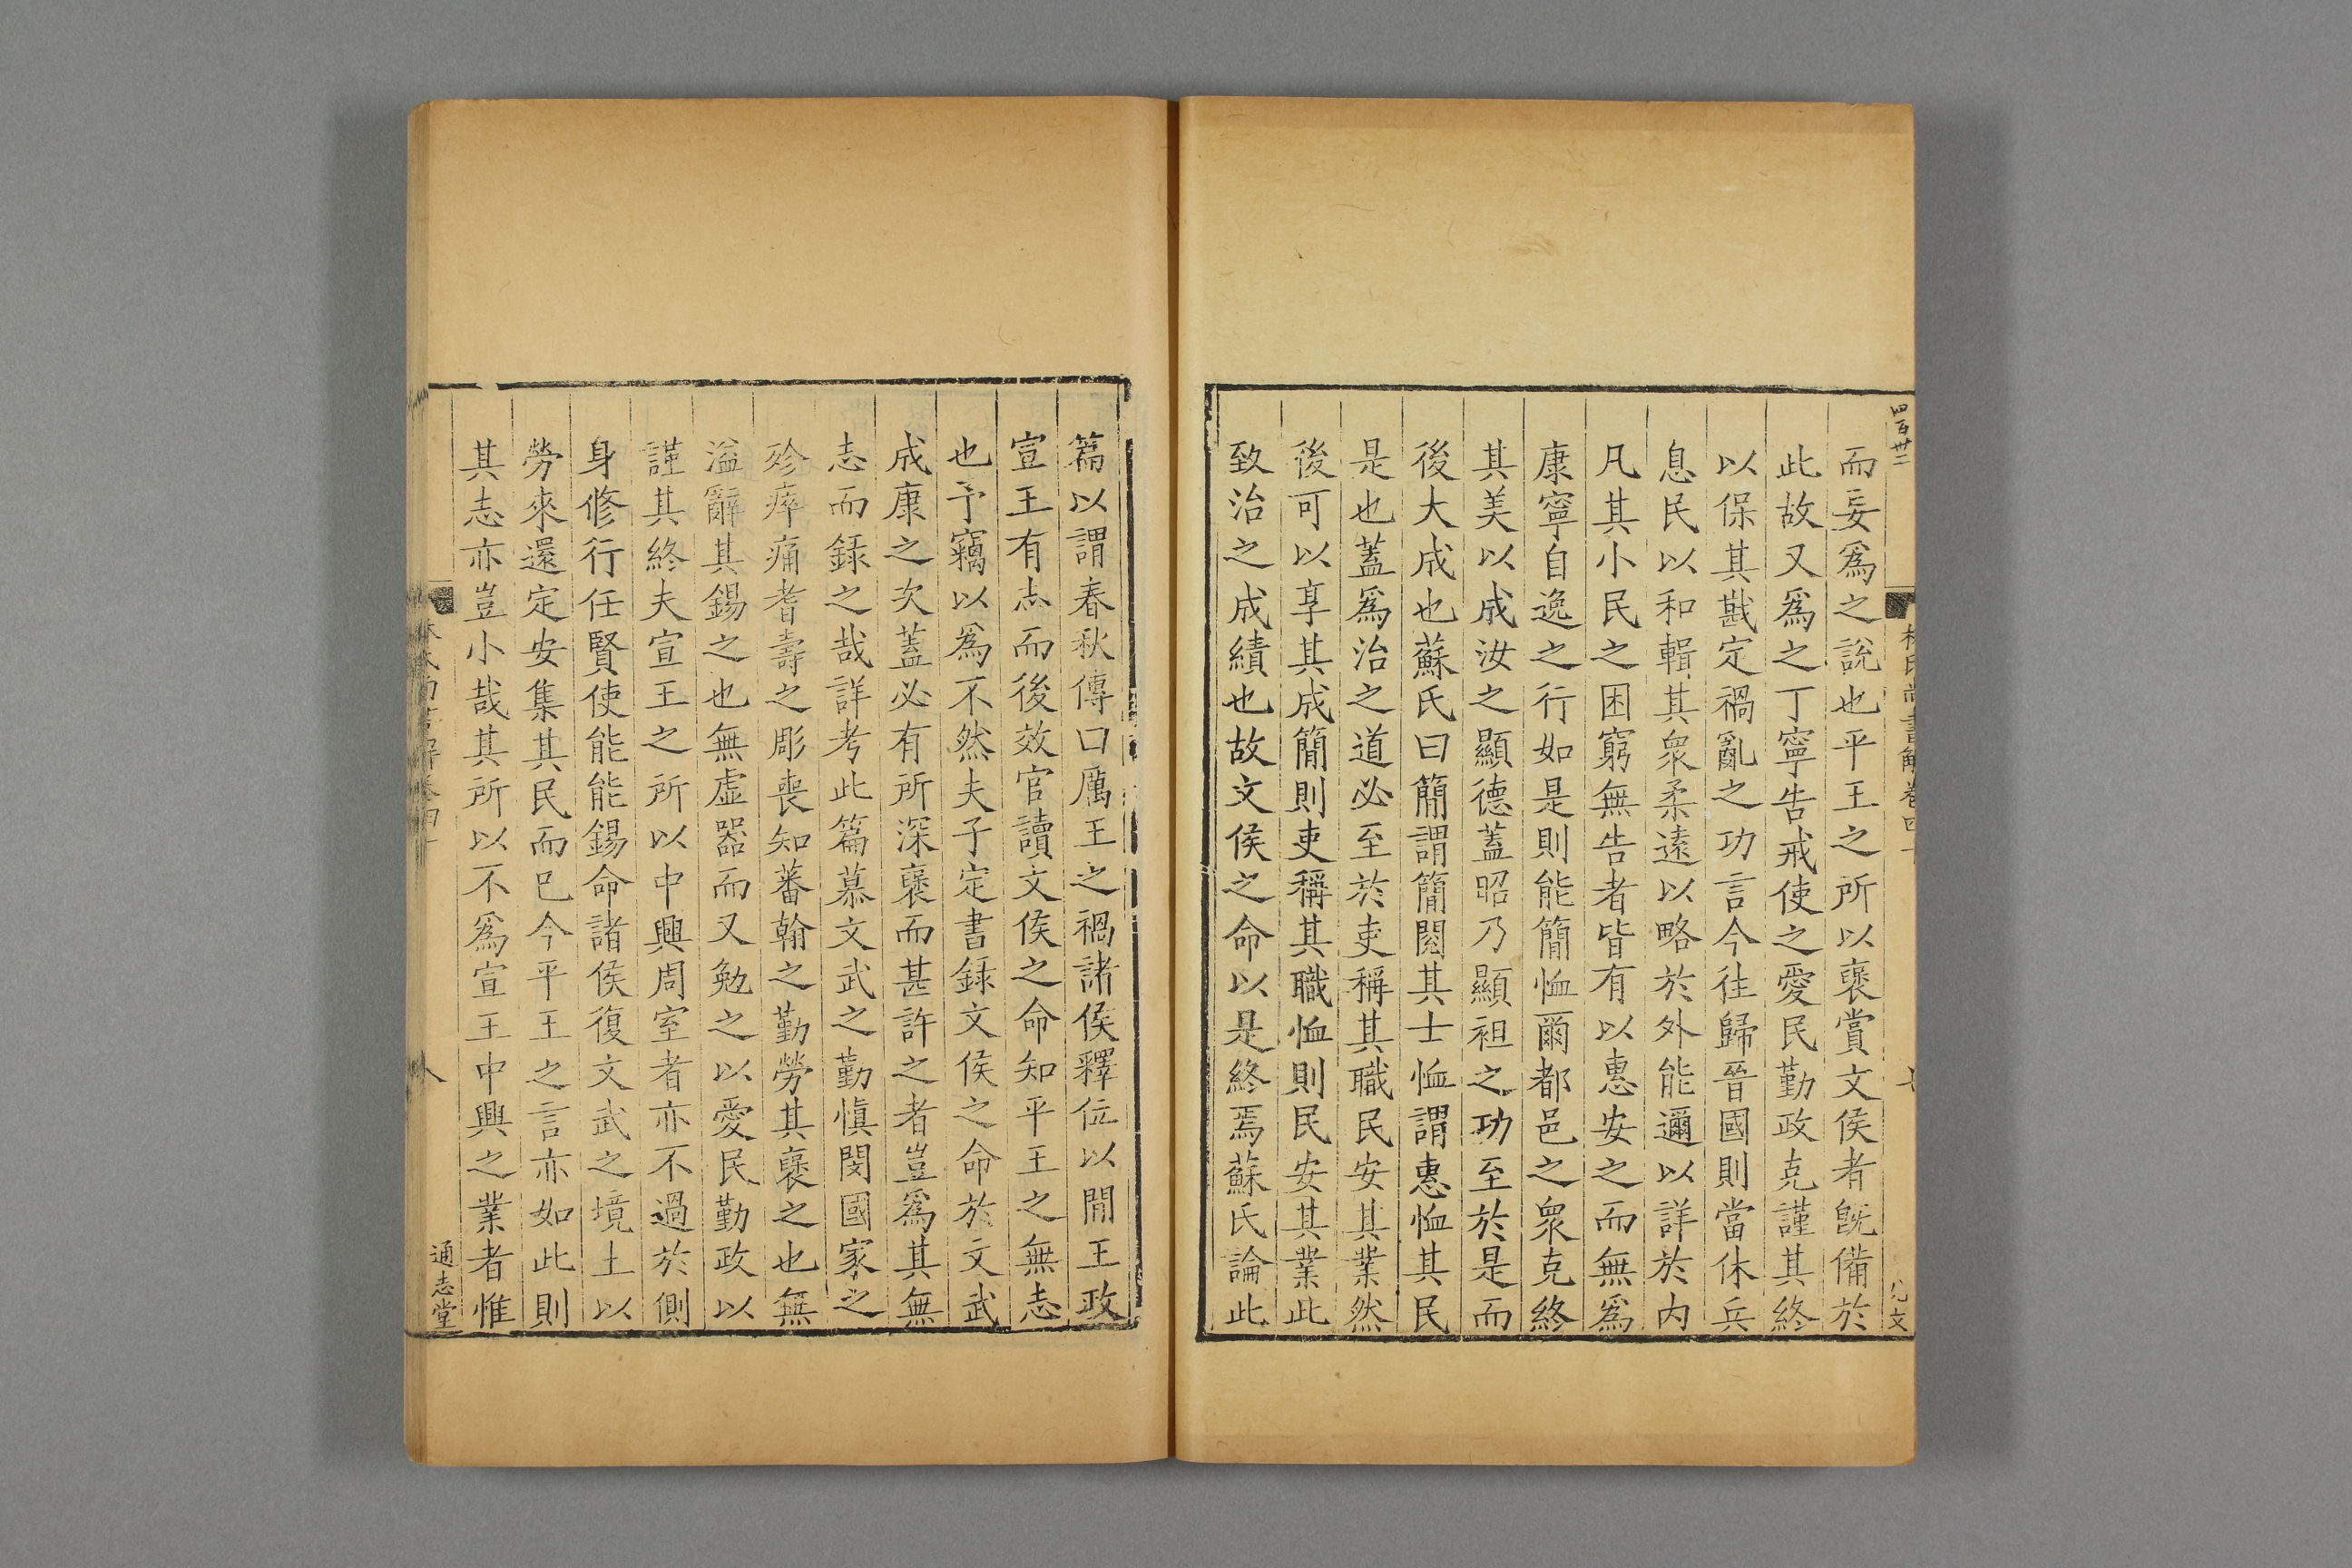 四百卅二
而妄爲之說也平王之所以襃賞文侯者旣備於
此故又爲之丁寧告戒使之愛民勤政克謹其終
以保其戡定禍亂之功言今往歸晉國則當休兵
息民以和輯其衆柔遠以略於外能邇以詳於内
凡其小民之困窮無告者皆有以惠安之而無爲
康寧自逸之行如是則能簡恤爾都邑之衆克終
其美以成汝之顯德蓋昭乃顯祖之功至於是而
後大成也蘇氏曰簡謂簡閱其士恤謂惠恤其民
是也蓋爲治之道必至於吏稱其職民安其業然
後可以享其成簡則吏稱其職恤則民安其業此
致治之成績也故文侯之命以是終焉蘇氏論此
篇以謂春秋傳曰厲王之禍諸侯釋位以閒王政
宣王有志而後效官讀文侯之命知平王之無志
也予竊以爲不然夫子定書録文侯之命於文武
成康之次蓋必有所深襃而甚許之者豈爲其無
志而録之哉詳考此篇慕文武之勤愼閔國家之
殄瘁痛耆壽之彫喪知蕃翰之勤勞其襃之也無
溢辭其錫之也無虛器而又勉之以愛民勤政以
謹其終夫宣王之所以中興周室者亦不過於側
身修行任賢使能能錫命諸侯復文武之境土以
勞來還定安集其民而已今平王之言亦如此則
其志亦豈小哉其所以不爲宣王中興之業者惟
八
通志堂